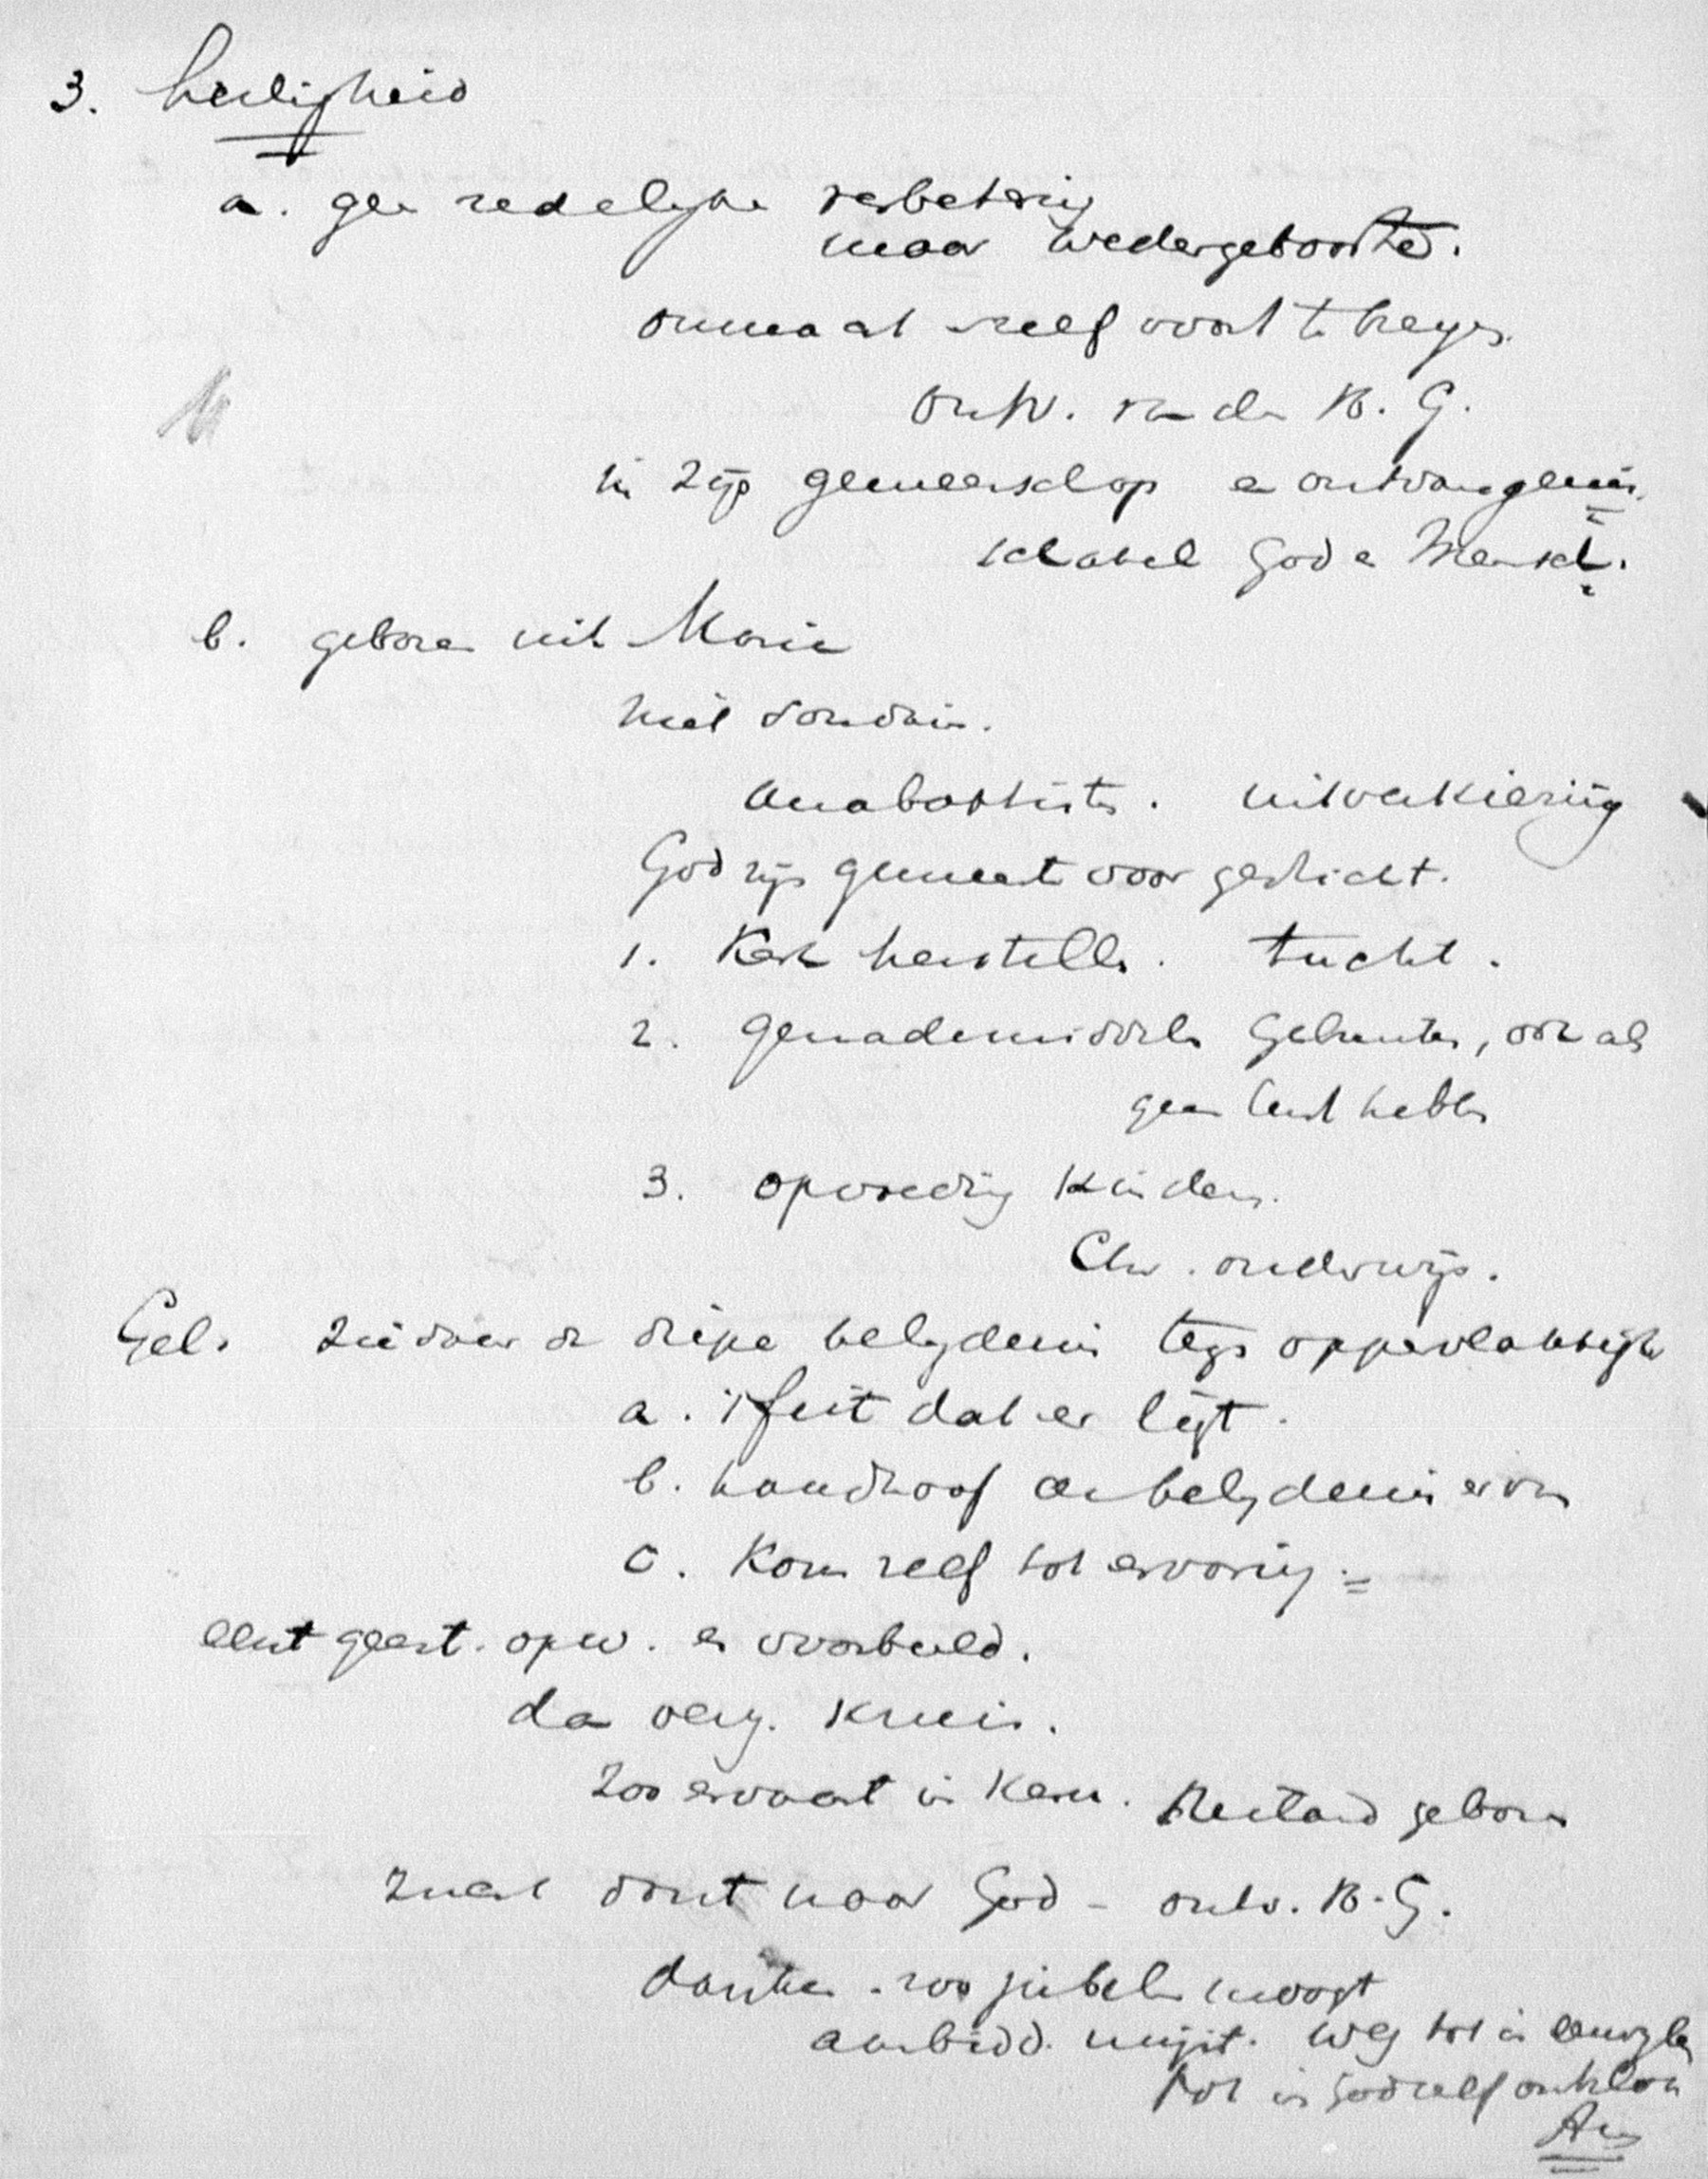 3. heiligheid
a. geen redelijke verbetering
maar wedergeboorte.
onmacht zelf voort te brengen.
Ontv. van den H. G.
in zijn gemeenschap en ontvangenis
schakel God en Mensch.
b. geboren uit Maria
niet Jordaan.
Anabaptisten. uitverkiezing
God zijn gemeente voor gesticht.
1. Kerk herstellen. tucht.
2. genademiddelen gebruiken, ook als
geen lust hebben
3. opvoeding kinderen.
Chr. onderwijs.
Gel. ziedaar de diepe belijdenis tegen oppervlakkigh
a. 't feit dat er ligt.
b. handhaaf de belijdenis ervan
c. Kom zelf tot ervaring.
eerst geest. opw. en voorbeeld.
dan verg. kruis.
Zoo ervaart in kern. Heiland geboren
dorst naar God - ontv. H. G.
danken. zoo jubelen moogt
aanbidd. weg tot in
tot in God zelf
Am